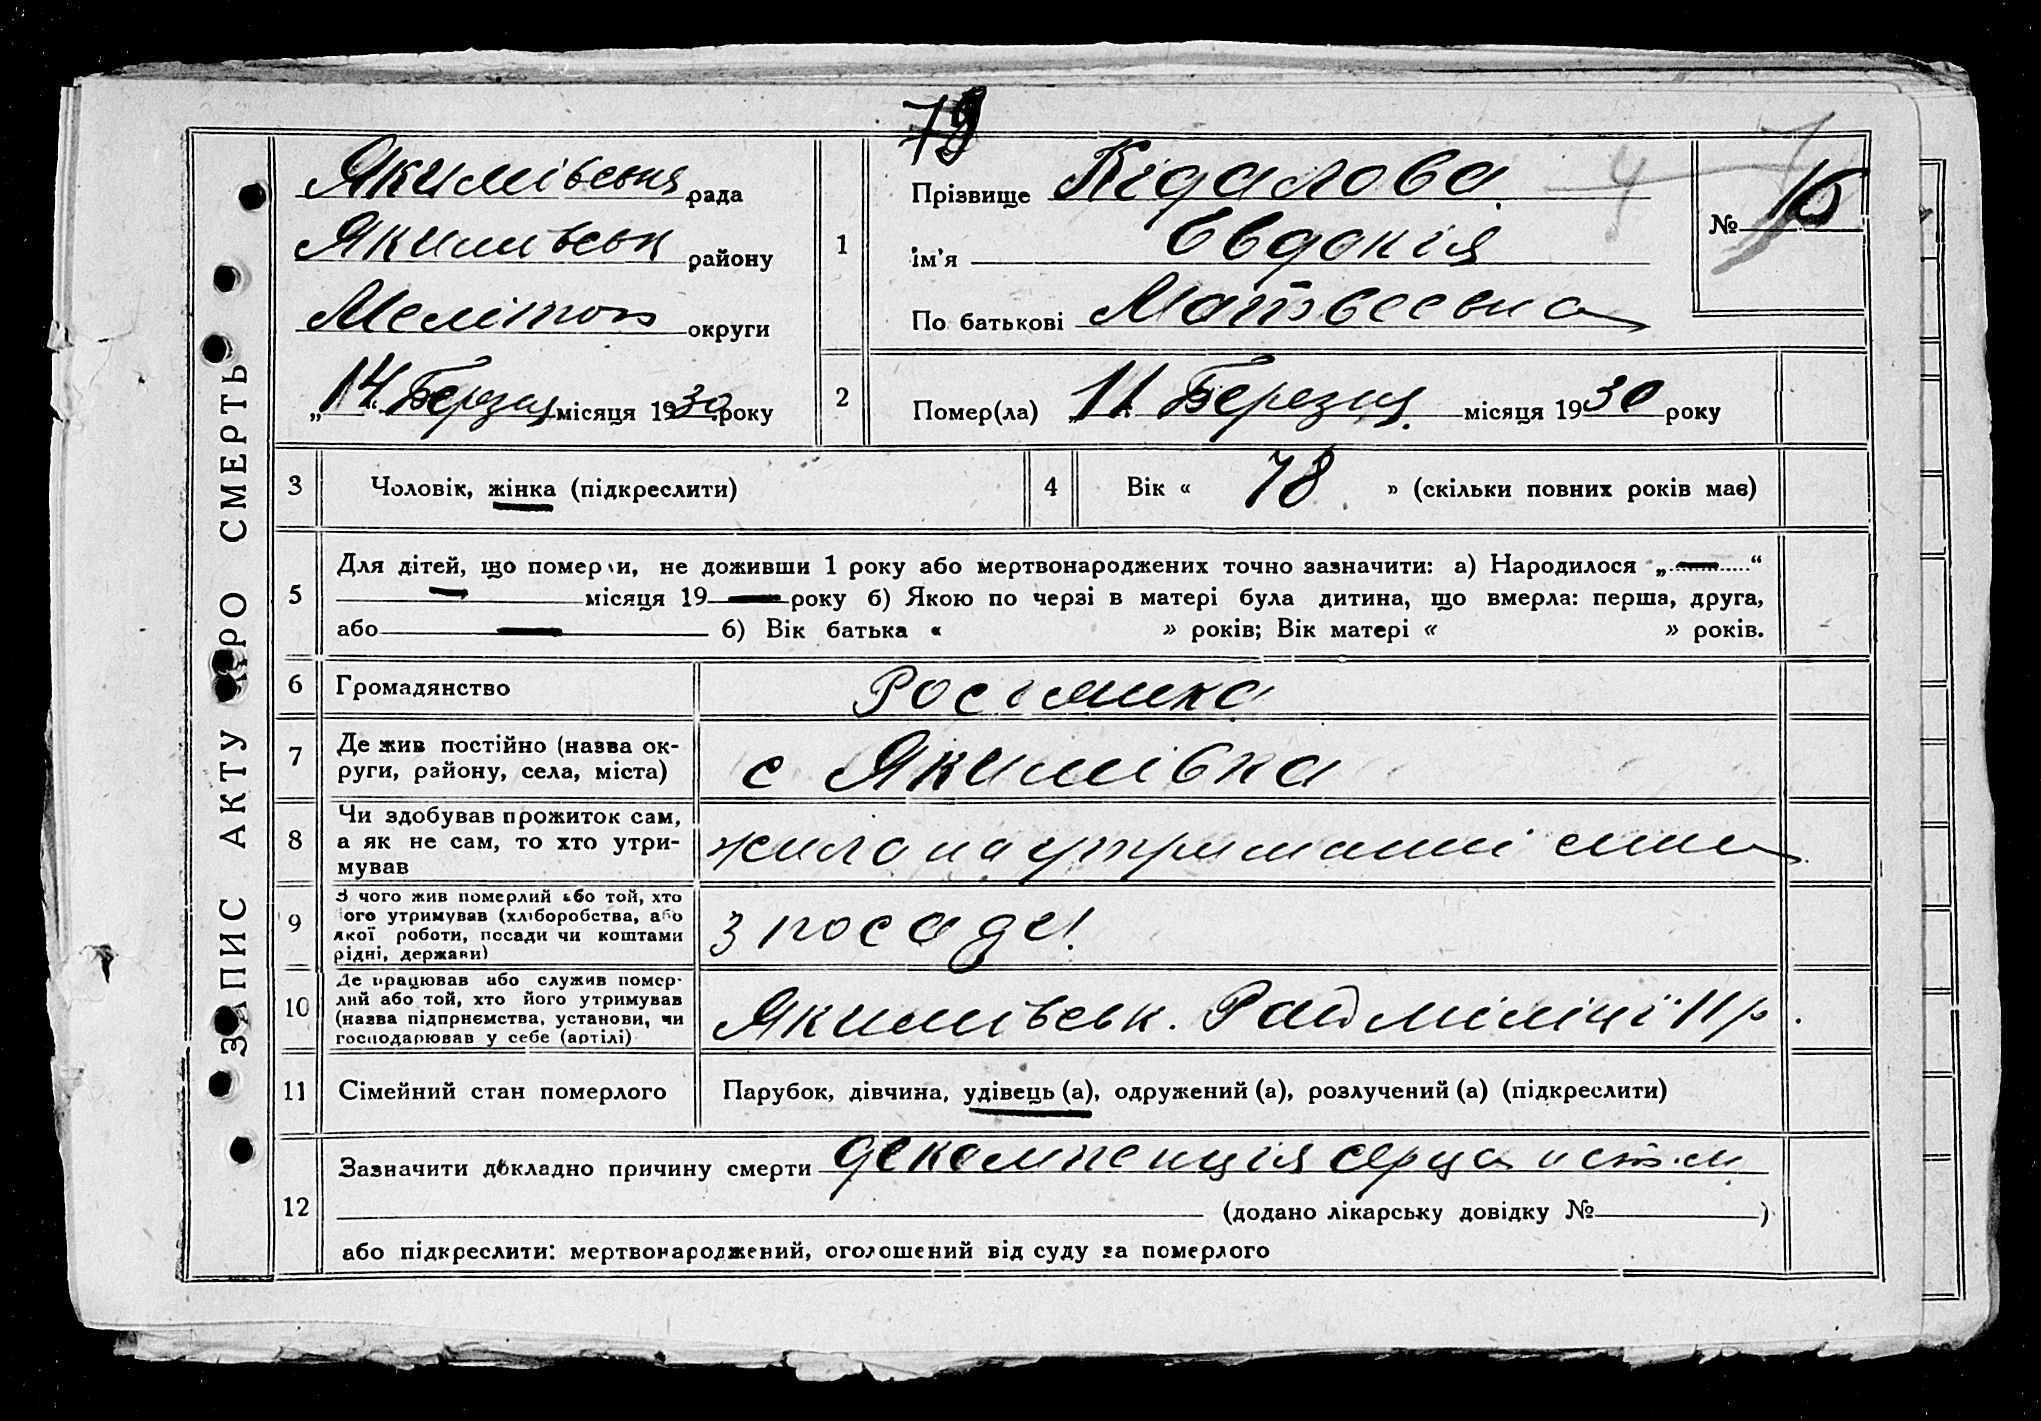 79
ЗАПИС АКТУ ПРО СМЕРТЬ
Якимівська рада
Якимівськ району
Мелітоп округи
„14“ Березня місяця 1930 року
1
Прізвище Кідалова
ім'я Євдокія
По батькові Матвеевна
№ 16
2
Помер(ла) „11“ Березня місяця 1930 року
3 Чоловік, жінка (підкреслити)
4 Вік « 78 » (скільки повних років має)
5
Для дітей, що померли, не доживши 1 року або мертвонароджених точно зазначити: а) Народилося „ — “
— місяця 19 — року б) Якою по черзі в матері була дитина, що вмерла: перша, друга,
або — б) Вік батька « » років; Вік матері « » років.
6 Громадянство Росіянка
7 Де жив постійно (назва ок-
руги, району, села, міста) с Якимівка
8 Чи здобував прожиток сам,
а як не сам, то хто утри- жила на утриманні сина
мував
9 З чого жив померлий або той, хто
його утримував (хліборобства, або
якої роботи, посади чи коштами з посади
рідні, держави)
10 Де працював або служив помер-
лий або той, хто його утримував
(назва підприємства, установи, чи Якимівськ. Рай міліції
господарював у себе (артілі)
11 Сімейний стан померлого Парубок, дівчина, удівець (а), одружений (а), розлучений (а) (підкреслити)
12
Зазначити докладно причину смерти декомпенція серца
(додано лікарську довідку № )
або підкреслити: мертвонароджений, оголошений від суду за померлого